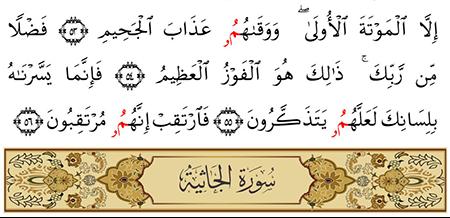 إِلَّا ٱلْمَوْتَةَ ٱلْأُولَىٰۖ وَوَقَىٰهُمُۥ عَذَابَ ٱلْجَحِيمِ ۝٥٣ فَضْلًا
مِّن رَّبِّكَۚ ذَٰلِكَ هُوَ ٱلْفَوْزُ ٱلْعَظِيمُ ۝٥٤ فَإِنَّمَا يَسَّرْنَٰهُ
بِلِسَانِكَ لَعَلَّهُمُۥ يَتَذَكَّرُونَ ۝٥٥ فَٱرْتَقِبْ إِنَّهُمُۥ مُرْتَقِبُونَ ۝٥٦
سُورَةُ الجَاثِيَةِ